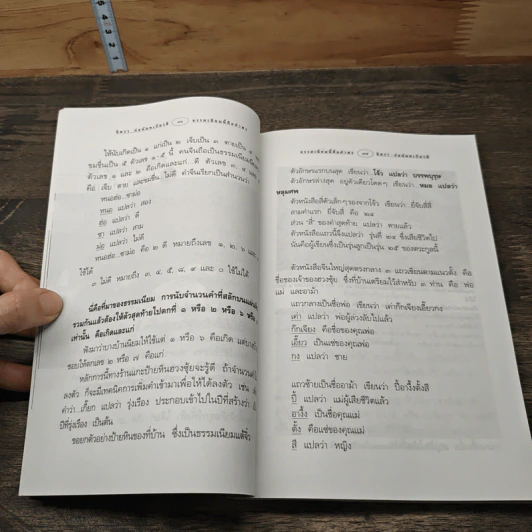 จิตรา ก่อนันทเกียรติ
ธรรมเนียมนี้คือคำตา
ให้นับเกิดเป็น ๑ แก่เป็น ๒ เจ็บเป็น ๓ ตายเป็น ๔
ชมชื่นเป็น ๕ ตัวเลข ๑-๕ นี้ คนจีนถือเป็นธรรมเนียมถือ
ตัวเลข ๑ และ ๒ คือเกิดและแก่...ดี ตัวเลข ๓, ๔ และ ๕
คือ เจ็บ ตาย และชมชื่น...ไม่ดี คำจีนเรียกเป็นสำนวนว่า
หนอฮ่อ...ซาม่อ
หนอ แปลว่า สอง
ฮ่อ แปลว่า ดี
ซา แปลว่า สาม
ม่อ แปลว่า ไม่ดี
หนอฮ่อ...ซาม่อ คือ ๒ ดี หมายถึงเลข ๑, ๒, ๖ และ
ใช้ได้
๓ ไม่ดี หมายถึง ๓, ๔, ๕, ๘, ๙ และ ๐ ใช้ไม่ได้
นี่คือที่มาของธรรมเนียม การนับจำนวนคำที่สลักบนแผ่น
รวมกันแล้วต้องให้ตัวสุดท้ายไปตกที่ ๑ หรือ ๒ หรือ ๖ หรือ
เท่านั้น คือเกิดและแก่
ฟังมาว่าบางบ้านนิยมให้ใช้แต่ ๑ หรือ ๖ คือเกิด แต่บาง
ชอบให้ตกเลข ๒ หรือ ๗ คือแก่
หลักการนี้ทางร้านแกะป้ายหินฮวงซุ้ยจะรู้ดี ถ้าจำนวนคำ
ลงตัว ก็จะมีเทคนิคการเพิ่มคำเข้ามาเพื่อให้ได้ลงตัว เช่น
คำว่า..เกี๊ยก แปลว่า รุ่งเรือง ประกอบเข้าไปในปีที่สร้างว่า
ปีที่รุ่งเรือง เป็นต้น
ขอยกตัวอย่างป้ายหินของที่บ้าน ซึ่งเป็นธรรมเนียมแต้จิ๋ว
ธรรมเนียมนี้คือคำตา
จิตรา ก่อนันทเกียรติ
ตัวอักษรแรกบนสุด เขียนว่า โจ้ว แปลว่า บรรพบุรุษ
ตัวอักษรล่างสุด อยู่ตัวเดียวโดดๆ เขียนว่า หมอ แปลว่า
หลุมศพ
ตัวหนังสือสี่ตัวเล็กๆ รองจากโจ้ว เขียนว่า ยี่จับสี่สี่
สามคำแรก ยี่จับสี่ คือ ๒๔
ส่วน "สี่" ของคำสุดท้าย แปลว่า ตามแล้ว
ตัวหนังสือแถวนี้จึงแปลว่า รุ่นที่ ๒๔ ซึ่งเสียชีวิตไป
นั่นคือผู้เขียนซึ่งเป็นรุ่นลูกเป็นรุ่น ๒๕ ของตระกูลนี้
ตัวหนังสือจีนใหญ่สุดตรงกลาง ๓ แถวเขียนตามแนวตั้ง คือ
ชื่อของเจ้าของฮวงซุ้ย ซึ่งที่บ้านเตรียมไว้สำหรับ ๓ ท่าน คือ พ่อ
แม่ และอาม้า
แถวกลางเป็นชื่อพ่อ เขียนว่า เค่ากึกเจียงเอี๊ยวกง
เค่า แปลว่า พ่อผู้ล่วงลับไปแล้ว
กึกเจียง คือชื่อของคุณพ่อ
เอี๊ยว เป็นแซ่ของคุณพ่อ
กง แปลว่า ชาย
แถวซ้ายเป็นชื่ออาม้า เขียนว่า ปี้อางึ้งตั้งสี
ปี้ แปลว่า แม่ผู้เสียชีวิตแล้ว
อางึ้ง เป็นชื่อคุณแม่
ตั้ง คือแซ่ของคุณแม่
สี แปลว่า หญิง